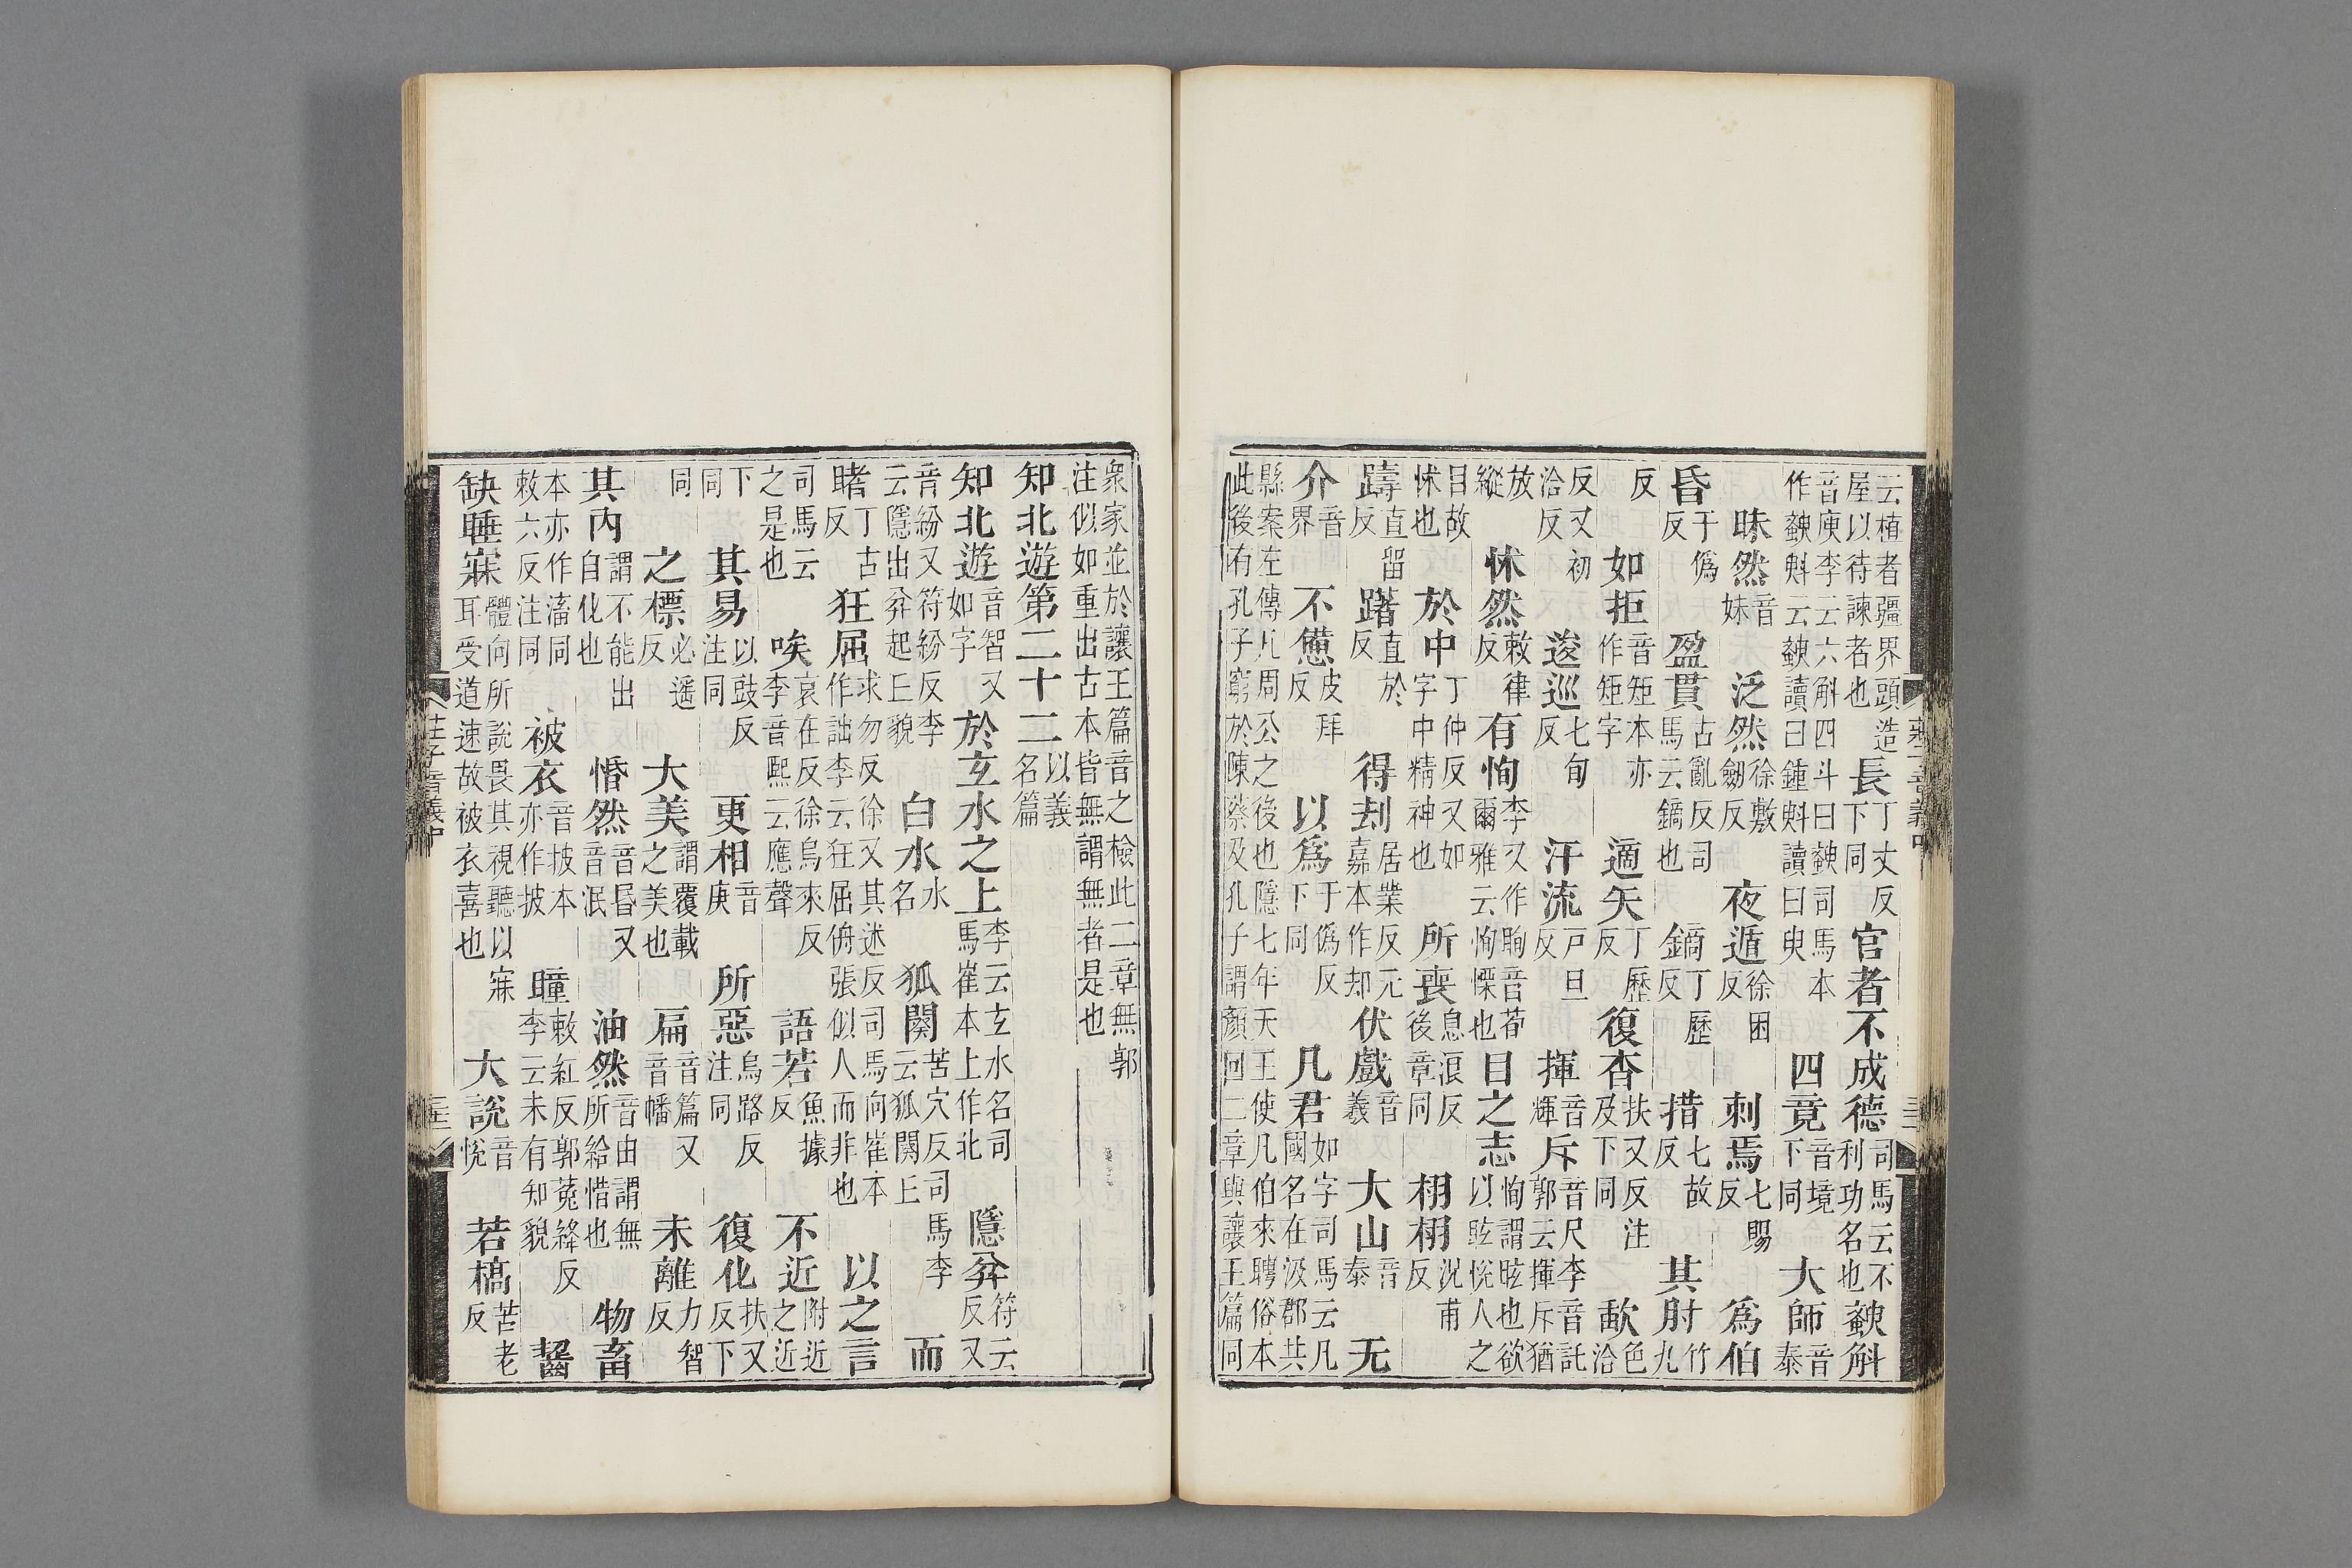 云植者疆界頭造屋以待諫者也 長丁丈反下同 官者不成德司馬云不利功名也 䠶斛
音庾李云六斛四斗曰䠶司馬本作䠶䰢云䠶讀曰鍾䰢讀曰臾 四竟音境下同 大師音泰
昧然音妹 泛然徐敷劒反 夜遁徐困反 刺焉七賜反 爲伯
昏于僞反 盈貫古亂反司馬云鏑也 鏑丁歷反 措七故反 其肘竹九
反 如拒音矩本亦作矩字 適矢丁歷反 復沓扶又反注及下同 歃色洽
反又初洽反 逡巡七旬反 汗流戸旦反 揮音輝 斥音尺李音託郭云揮斥猶
放縱 怵然敕律反 有恂李又作眴音荀爾雅云恂慄也 目之志恂謂眩也欲以眩恱人之
目故怵也 於中丁仲反又如字中精神也 所喪息浪反後章同 栩栩况甫反
躊直留反 躇直於反 得刦居業反元嘉本作却 伏戲音羲 大山音泰 无
介音界 不憊皮拜反 以爲于僞反下同 凡君如字司馬云凡國名在汲郡共
縣案左傳凡周公之後也隱七年天王使凡伯來聘俗本此後有孔子窮於陳蔡及孔子謂顔回二章與讓王篇同
衆家並於讓王篇音之檢此二章無郭注似如重出古本皆無謂無者是也
知北遊第二十二以義名篇
知北遊音智又如字 於玄水之上李云玄水名司馬崔本上作北 隱弅符云反又
音紛又符紛反李云隱出弅起丘貌 白水水名 狐闋苦穴反司馬李云狐闋丘 而
睹丁古反 狂屈求勿反徐又其述反司馬向崔本作詘李云狂屈侜張似人而非也 以之言
司馬云之是也 唉哀在反徐烏來反李音熙云應聲 語若魚據反 不近附近之近
下同 其易以豉反注同 更相音庚 所惡烏路反注同 復化扶又反下
同 之標必遥反 大美謂覆載之美也 扁音篇又音幡 未離力智反
其內謂不能出自化也 惛然音昏又音泯 油然音由謂無所給惜也 物畜
本亦作滀同敕六反注同 被衣音披本亦作披 瞳敕紅反郭菟絳反李云未有知貌 齧
缺睡寐體向所說畏其視聽以寐耳受道速故被衣喜也 大說音恱 若槁苦老反
莊子音義中